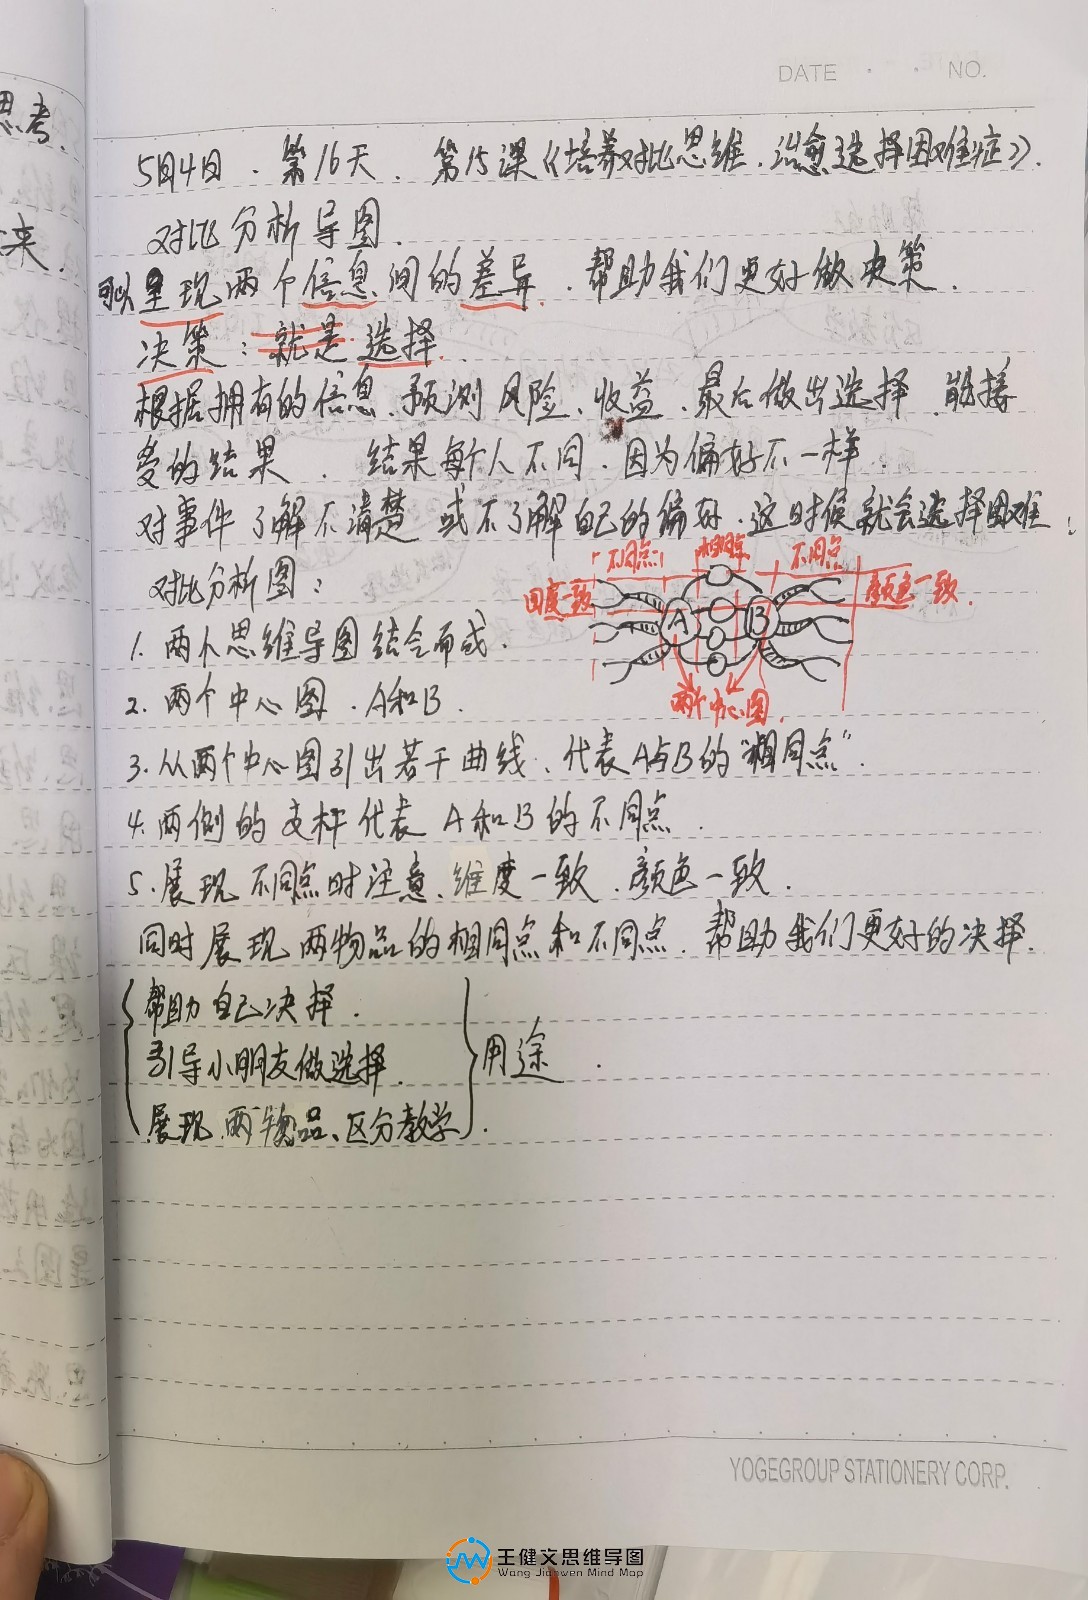 DATE · · NO.
思考.
来.
5月4日. 第16天. 第15课《培养对比思维.治愈选择困难症》.
对比分析导图.
可以呈现两个信息间的差异.帮助我们更好做决策.
决策:就是选择.
根据拥有的信息.预测风险、收益.最后做出选择.能接
受的结果. 结果每个人不同.因为偏好不一样.
对事件了解不清楚 或不了解自己的偏好.这时候就会选择困难.
不同点 相同点 不同点
对比分析图:
回度一致 A B 颜色一致.
1.两个思维导图结合而成.
2.两个中心图.A和B.
两个中心图.
3.从两个中心图引出若干曲线、代表A与B的"相同点".
4.两侧的支杆代表A和B的不同点.
5.展现不同点时注意、维度一致.颜色一致.
同时展现两物品的相同点和不同点.帮助我们更好的决择.
帮助自己决择.
引导小朋友做选择. 用途.
展现两物品、区分教学.
YOGEGROUP STATIONERY CORP.
王健文思维导图
Wang Jianwen Mind Map